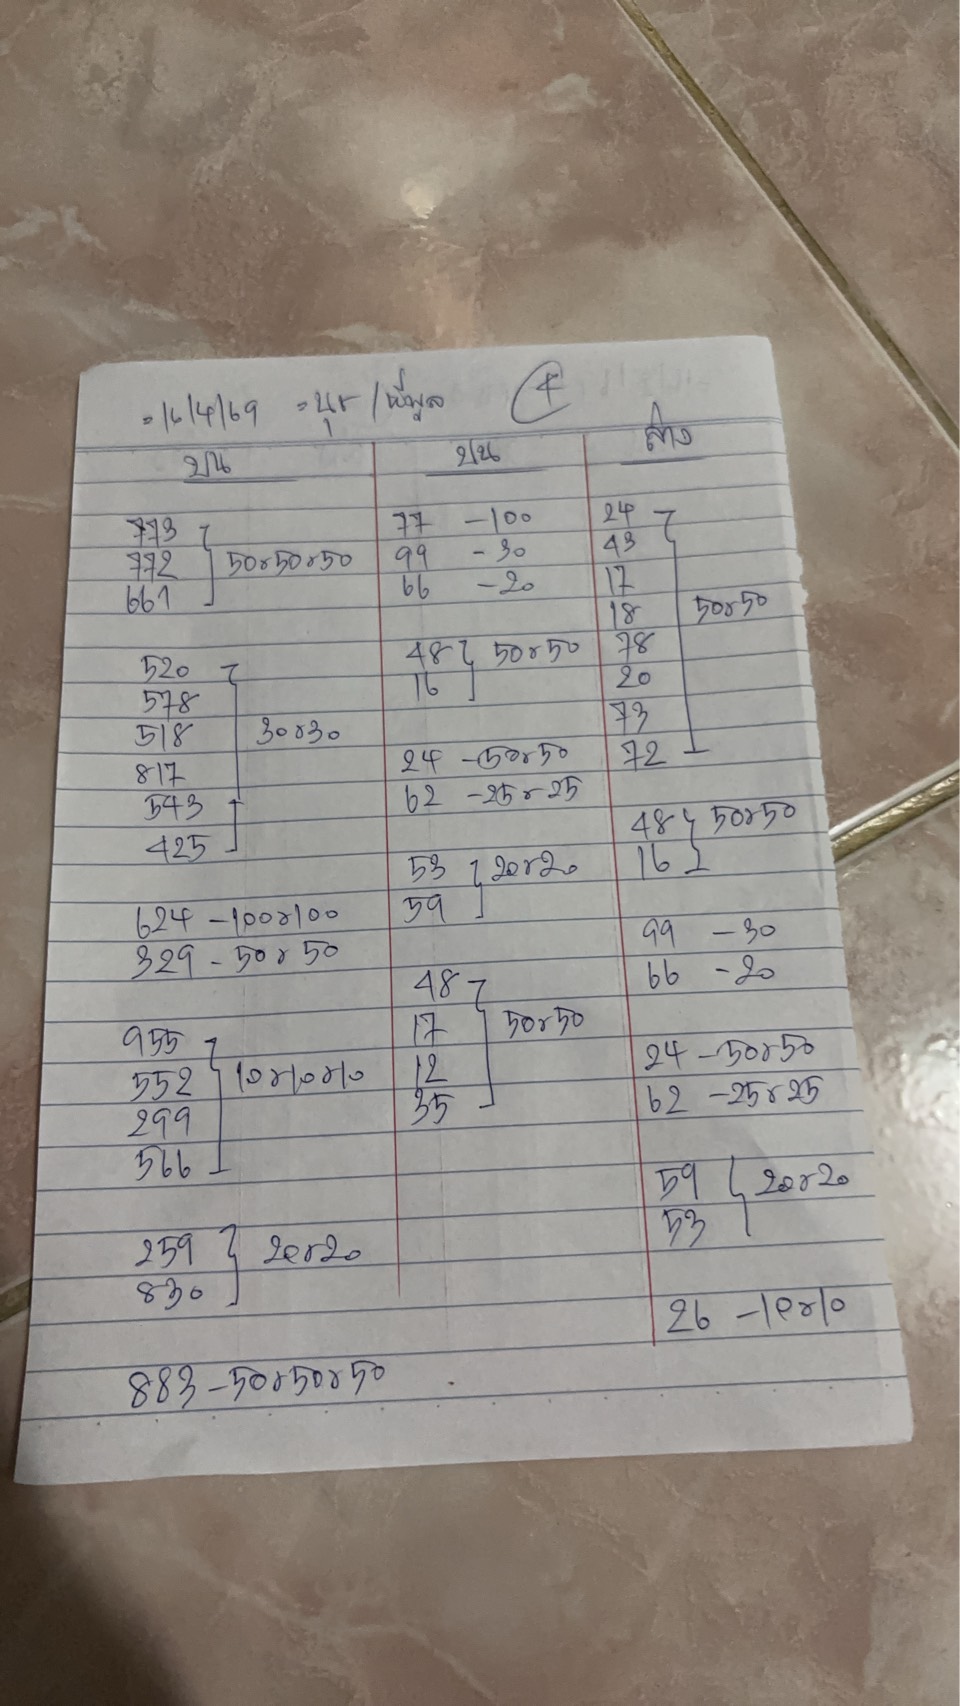 = 16/4/69 = นุช / พี่พูล 4
บน
773
772 50x50x50
661
520
578
518 30x30
817
543
425
624 - 100x100
329 - 50x50
955
552 10x10x10
299
566
259 20x20
830
883 - 50x50x50
บน
77 - 100
99 - 30
66 - 20
48 50x50
16
24 - 50x50
62 - 25x25
53 20x20
59
48
17 50x50
12
35
ล่าง
24
43
17
18 50x50
78
20
73
72
48 50x50
16
99 - 30
66 - 20
24 - 50x50
62 - 25x25
59 20x20
53
26 - 10x10